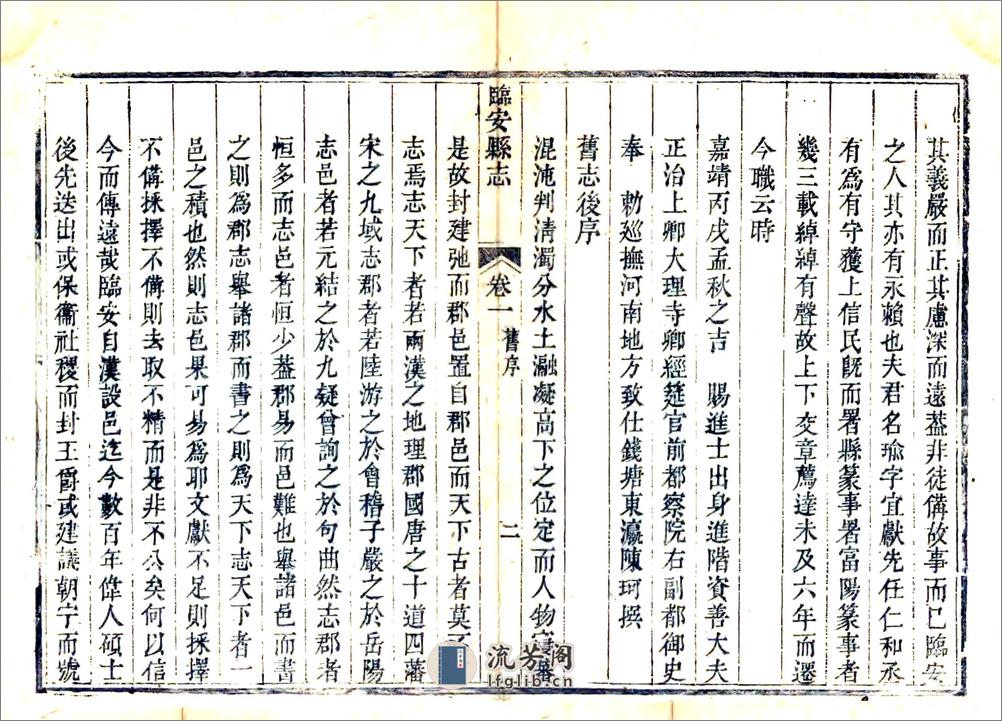 其義嚴而正其慮深而遠葢非徒備故事而已臨安
之人其亦有永賴也夫君名瑜字宜獻先任仁和丞
有爲有守獲上信民旣而署縣篆事署富陽篆事者
幾三載綽綽有聲故上下交章薦達未及六年而遷
今職云時
嘉靖丙戌孟秋之吉 賜進士出身進階資善大夫
正治上卿大理寺卿經筵官前都察院右副都御史
奉 勅巡撫河南地方致仕錢塘東瀛陳珂撰
舊志後序
混沌判清濁分水土融凝高下之位定而人物
臨安縣志
卷一
舊序
二
是故封建弛而郡邑置自郡邑而天下古者莫不
志焉志天下者若兩漢之地理郡國唐之十道四藩
宋之九域志郡者若陸游之於會稽子嚴之於岳陽
志邑者若元結之於九疑曾詢之於句曲然志郡者
恒多而志邑者恒少葢郡易而邑難也舉諸邑而書
之則爲郡志舉諸郡而書之則爲天下志天下者一
邑之積也然則志邑果可易爲耶文獻不足則採擇
不備採擇不備則去取不精而是非不公矣何以信
今而傳遠哉臨安自漢設邑迄今數百年偉人碩士
後先迭出或保衞社稷而封王爵或建議朝宁而號
流芳阁
lfglib.com